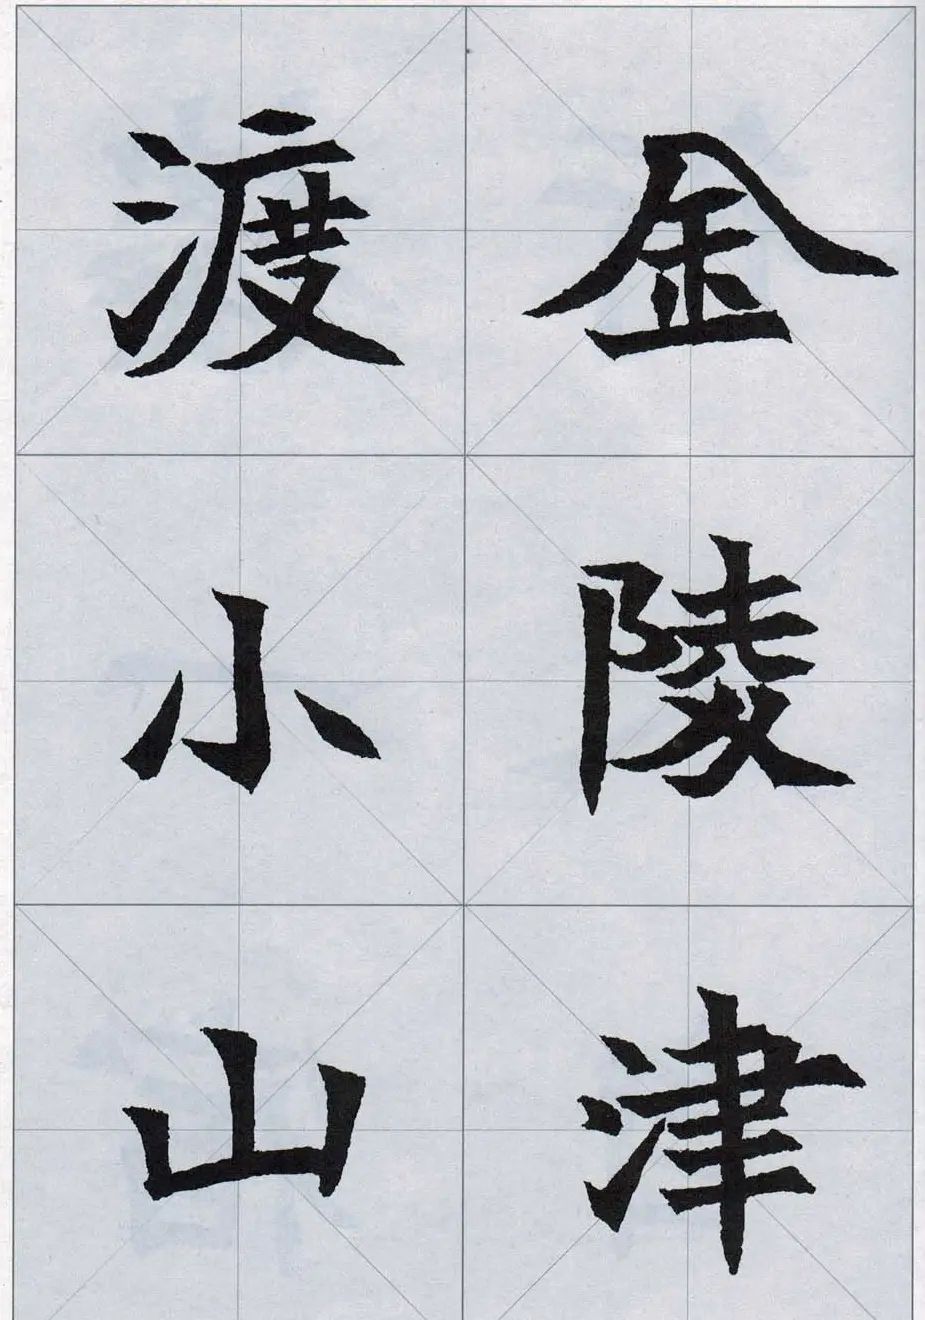 金陵津
渡小山